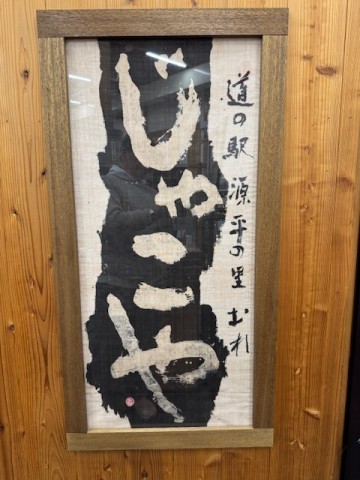 道の駅 源平の里 むれ
じゃこや